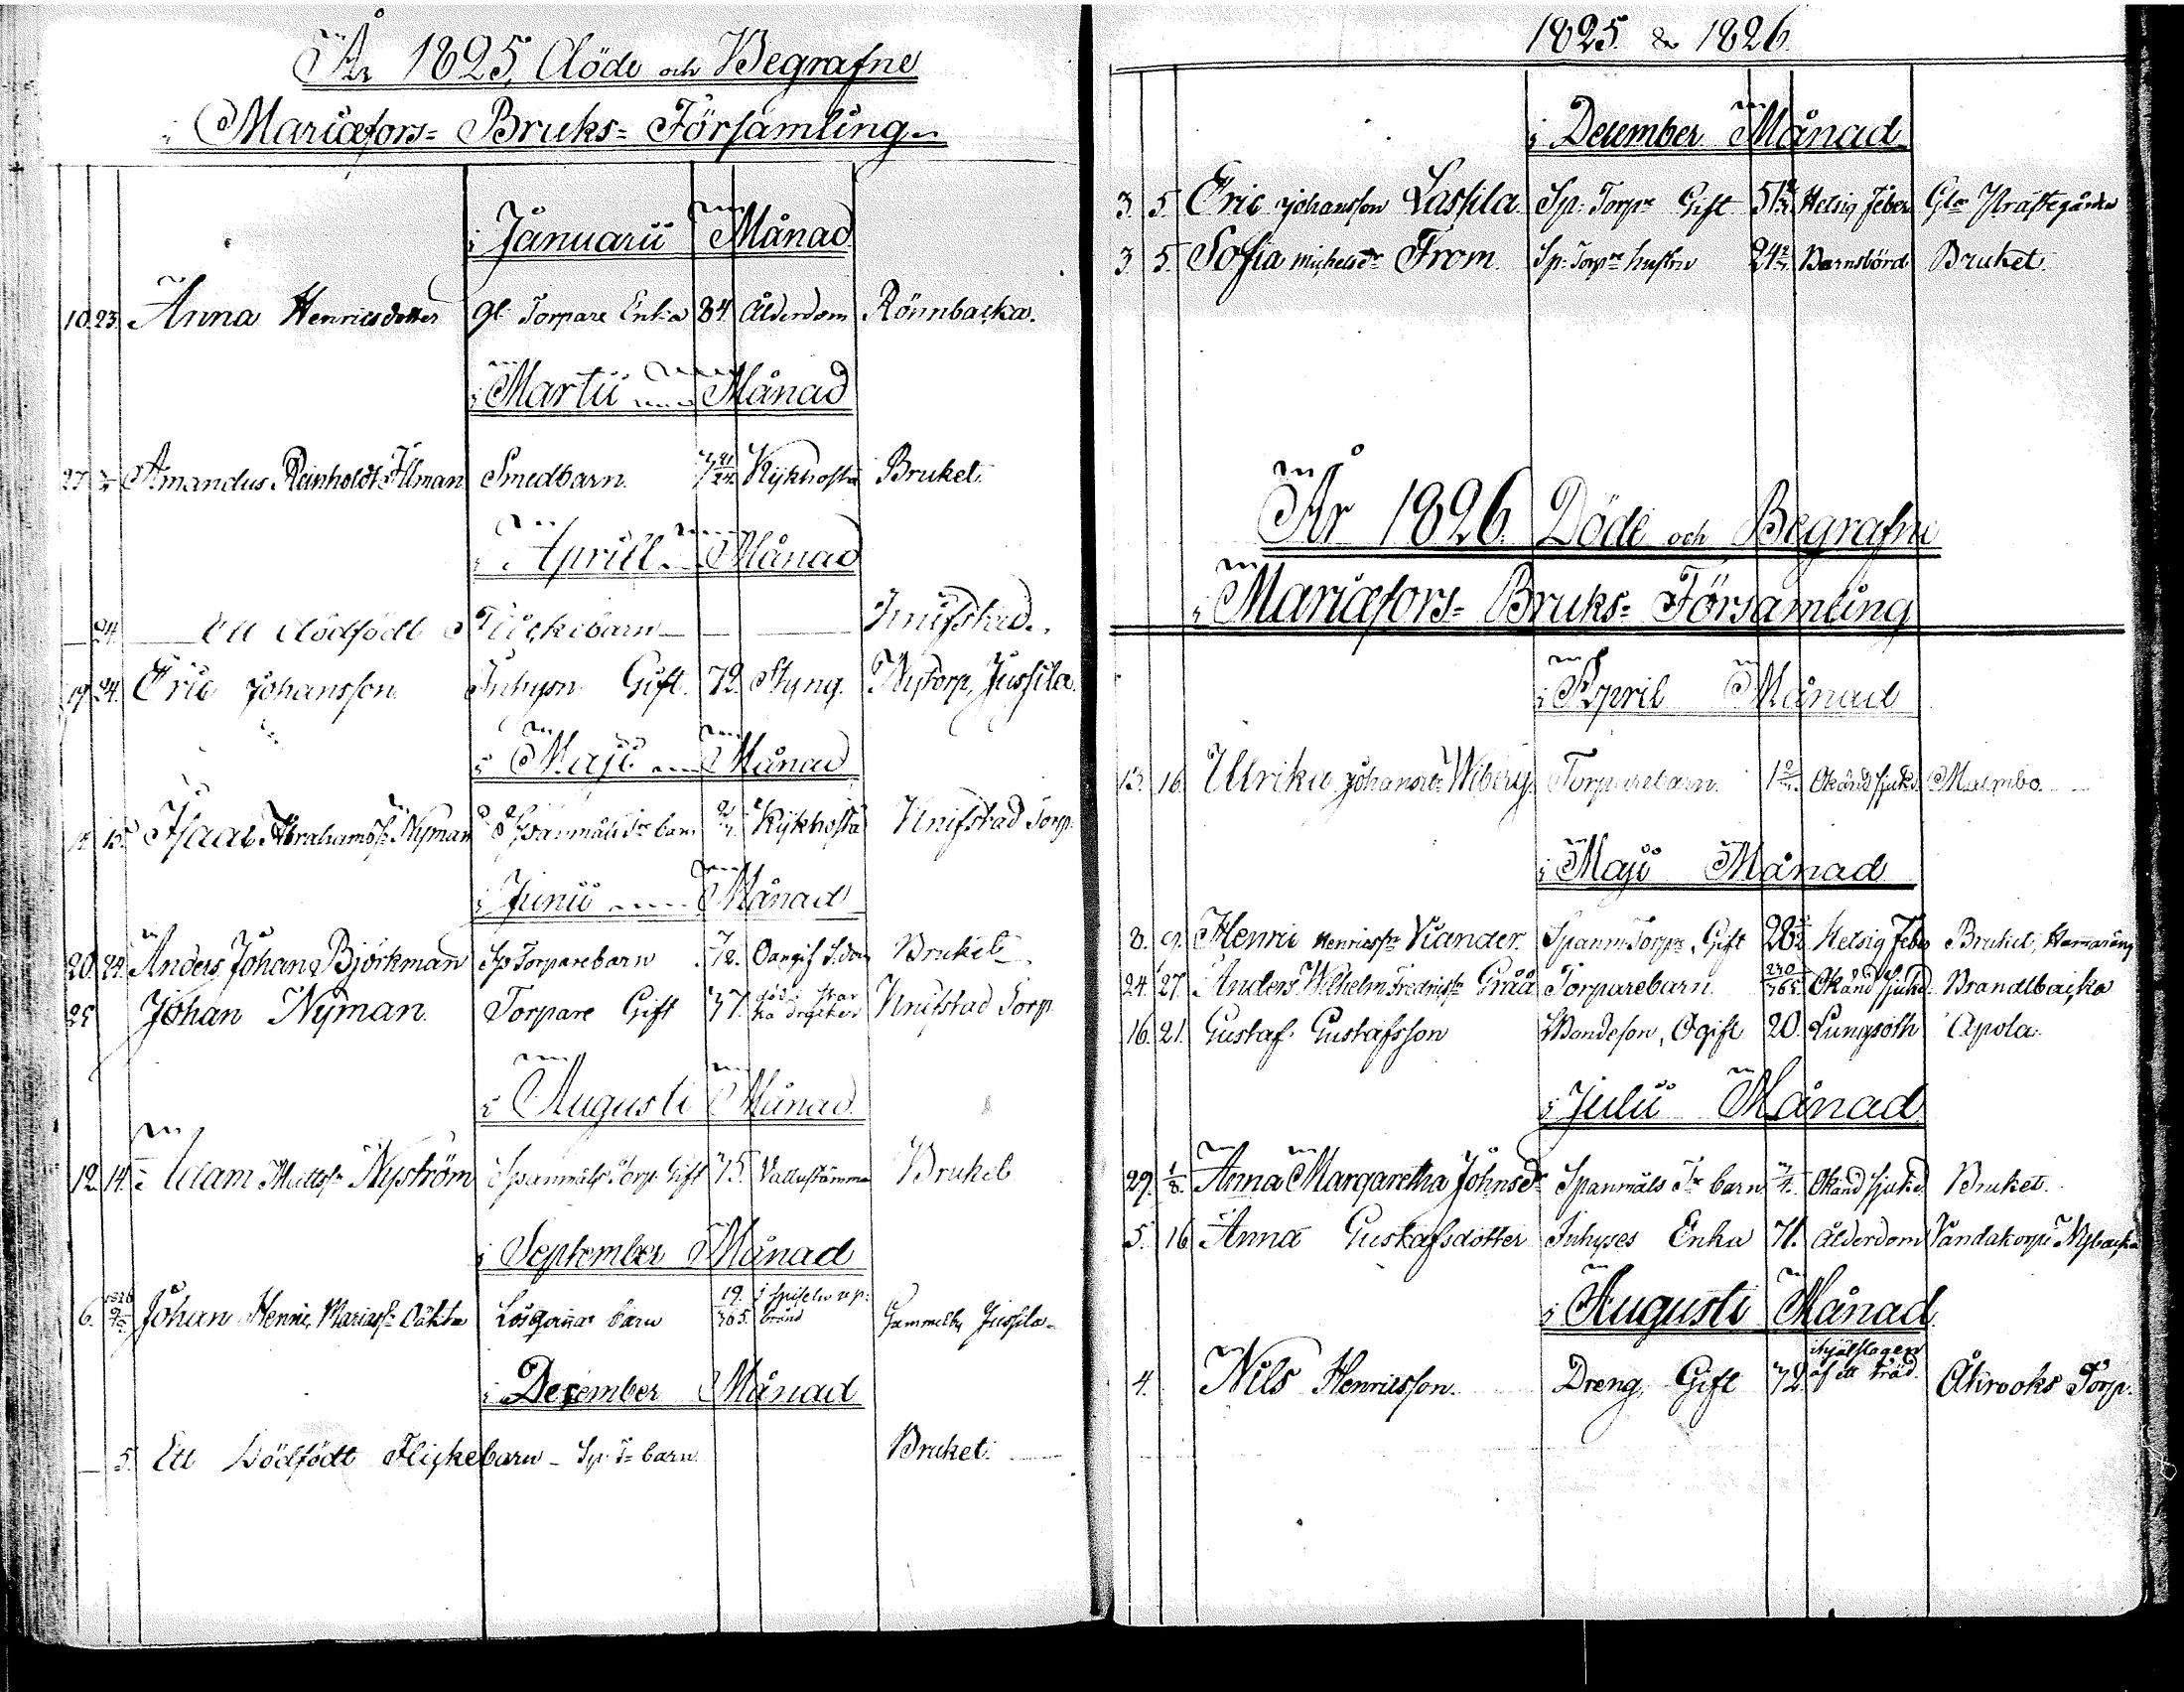 År 1825, döde och Begrafne
i Mariæfors= Bruks= Församling
i Januarii Månad
10. 23. Anna Henricsdotter gl. Torpare Enka 84. Ålderdom Rönnbacka.
i Martii Månad
27 Amandus Reinholdt Smedbarn Kijkhosta Bruket.
i Aprill Månad
24. Ett dödfödt Flickebarn Knifstad.
19 24. Eric Johansson Inhysn Gift. 72. Styng. Nytorp, Jussila.
i Maji Månad
15. Isaac Abrahamss: Nyman Spanmåls Tr barn Kijkhosta Knifstad Torp.
i Junii Månad
20. 24. Anders Johan Björkman Sp Torparebarn Oangif. Bruket
25 Johan Nyman. Torpare Gift 37. Knifstad Torp
i Augusti Månad
12. 14. Adam Mattss: Nyström Spanmåls Torp. Gift 75. Bruket
i September Månad
6. Johan Henric Mariæss: barn 19/365. Gammelby Jussila
i December Månad
5. Ett Dödfödt Flickebarn Sp. Tr barn. Bruket.
1825. & 1826.
i December Månad
3. 5. Eric Johansson Lassila. Sp: Torpr Gift Helsig Feber
3 5. Sofia Michelsdr From. Sp: Torpre hustru Barnsbörd Bruket.
År 1826. Döde och Begrafne
i Mariæfors= Bruks= Församling
i April Månad
13. 16. Ulrika Johansdr Wiberg. Torparebarn. Okänd sjukd. Malmbo.
i Maji Månad
8. 9. Henric Henricssn Viander. Spanm: Torpr, Gift Hetsig Feber Bruket,
24. 27. Anders Wilhelm Gråå Torparebarn. 230/365. Okänd sjukd. Brandbacka
16. 21. Gustaf Gustafsson Bondeson, Ogift 20. Lungsoth Apola.
i Julii Månad
29. 1/8. Anna Margaretha Johnsdr Spanmåls Tr barn Okänd sjukd. Bruket.
5. 16. Anna Gustafsdotter Inhyses Enka 71. Ålderdom Nybacka
i Augusti Månad
4. Nils Henricsson. Dreng, Gift 72. ihjälslagen
af ett träd. Åkrooks Torp.